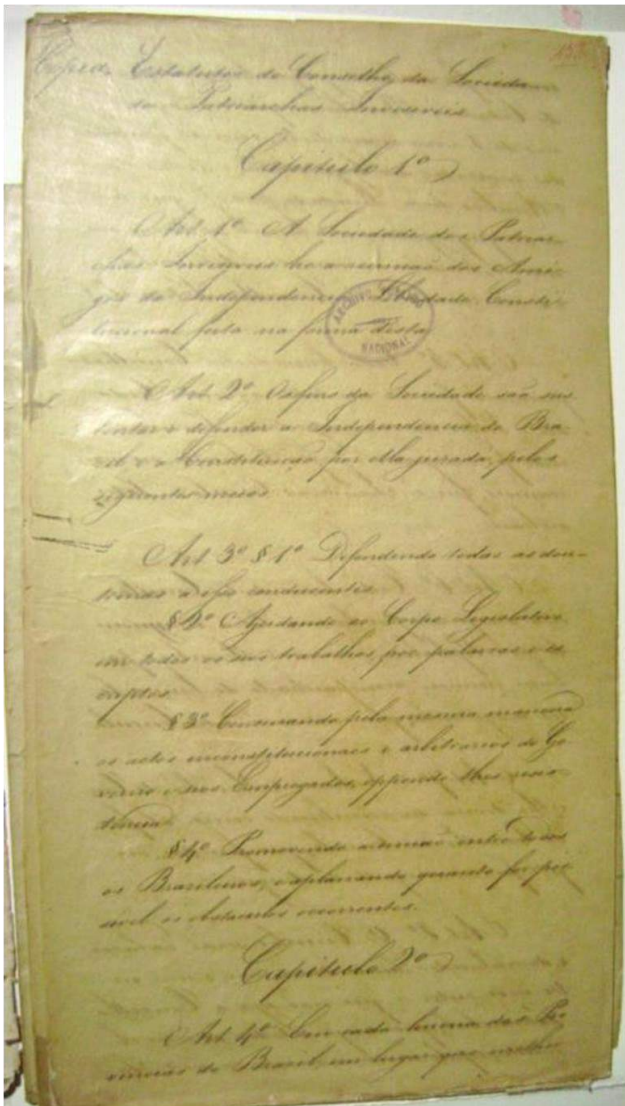 Estatutos do Conselho da Socieda-
de Patriarchas Invisiveis
Capitulo 1º
Art. 1º A Sociedade dos Patriar-
chas Invisiveis he a reunião dos Ami-
gos da Independencia e Liberdade Consti-
tucional feita na forma desta
ARCHIVO NACIONAL
Art. 2º Os fins da Sociedade são sus-
tentar e defender a Independencia do Bra-
sil e a Constituição por elle jurada, pelos
seguintes meios
Art 3º § 1º Defendendo todas as dou-
trinas a esse conducentes.
§ 2º Ajudando ao Corpo Legislativo
em todos os seus trabalhos, por palavras e es-
criptos.
§ 3º Censurando pela mesma maneira
os actos inconstitucionaes e arbitrarios do Go-
verno e seus Empregados, oppondo-lhes resis-
tencia.
§ 4º Promovendo a união entre todos
os Brasileiros, e aplanando quanto for pos-
sivel os obstaculos occorrentes.
Capitulo 2º
Art. 4º Em cada huma das Pro-
vincias do Brasil em lugar que melhor